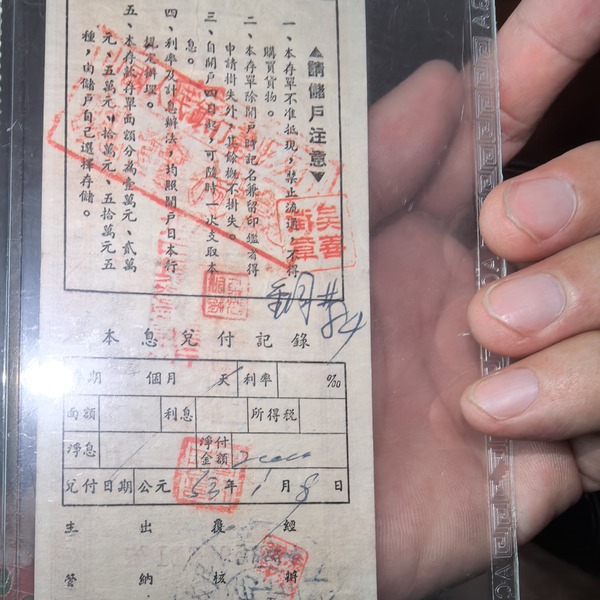 ▲請儲戶注意▼
一、本存單不准抵現，禁止流通，不得
購買貨物。
二、本存單除開戶時記名兼留印鑑者得
申請掛失外，其餘概不掛失。
三、自開戶四日起，可隨時一次支取本
息。
四、利率及計息辦法，均照開戶日本行
規定辦理。
五、本存款存單面額分為壹萬元、貳萬
元、五萬元、拾萬元、五拾萬元五
種，由儲戶自己選擇存儲。
本息兌付記錄
期 個月 天 利率 ‰
面額 利息 所得稅
淨息 淨付金額
兌付日期 公元 53年1月8日
主管 出納 覆核 經辦